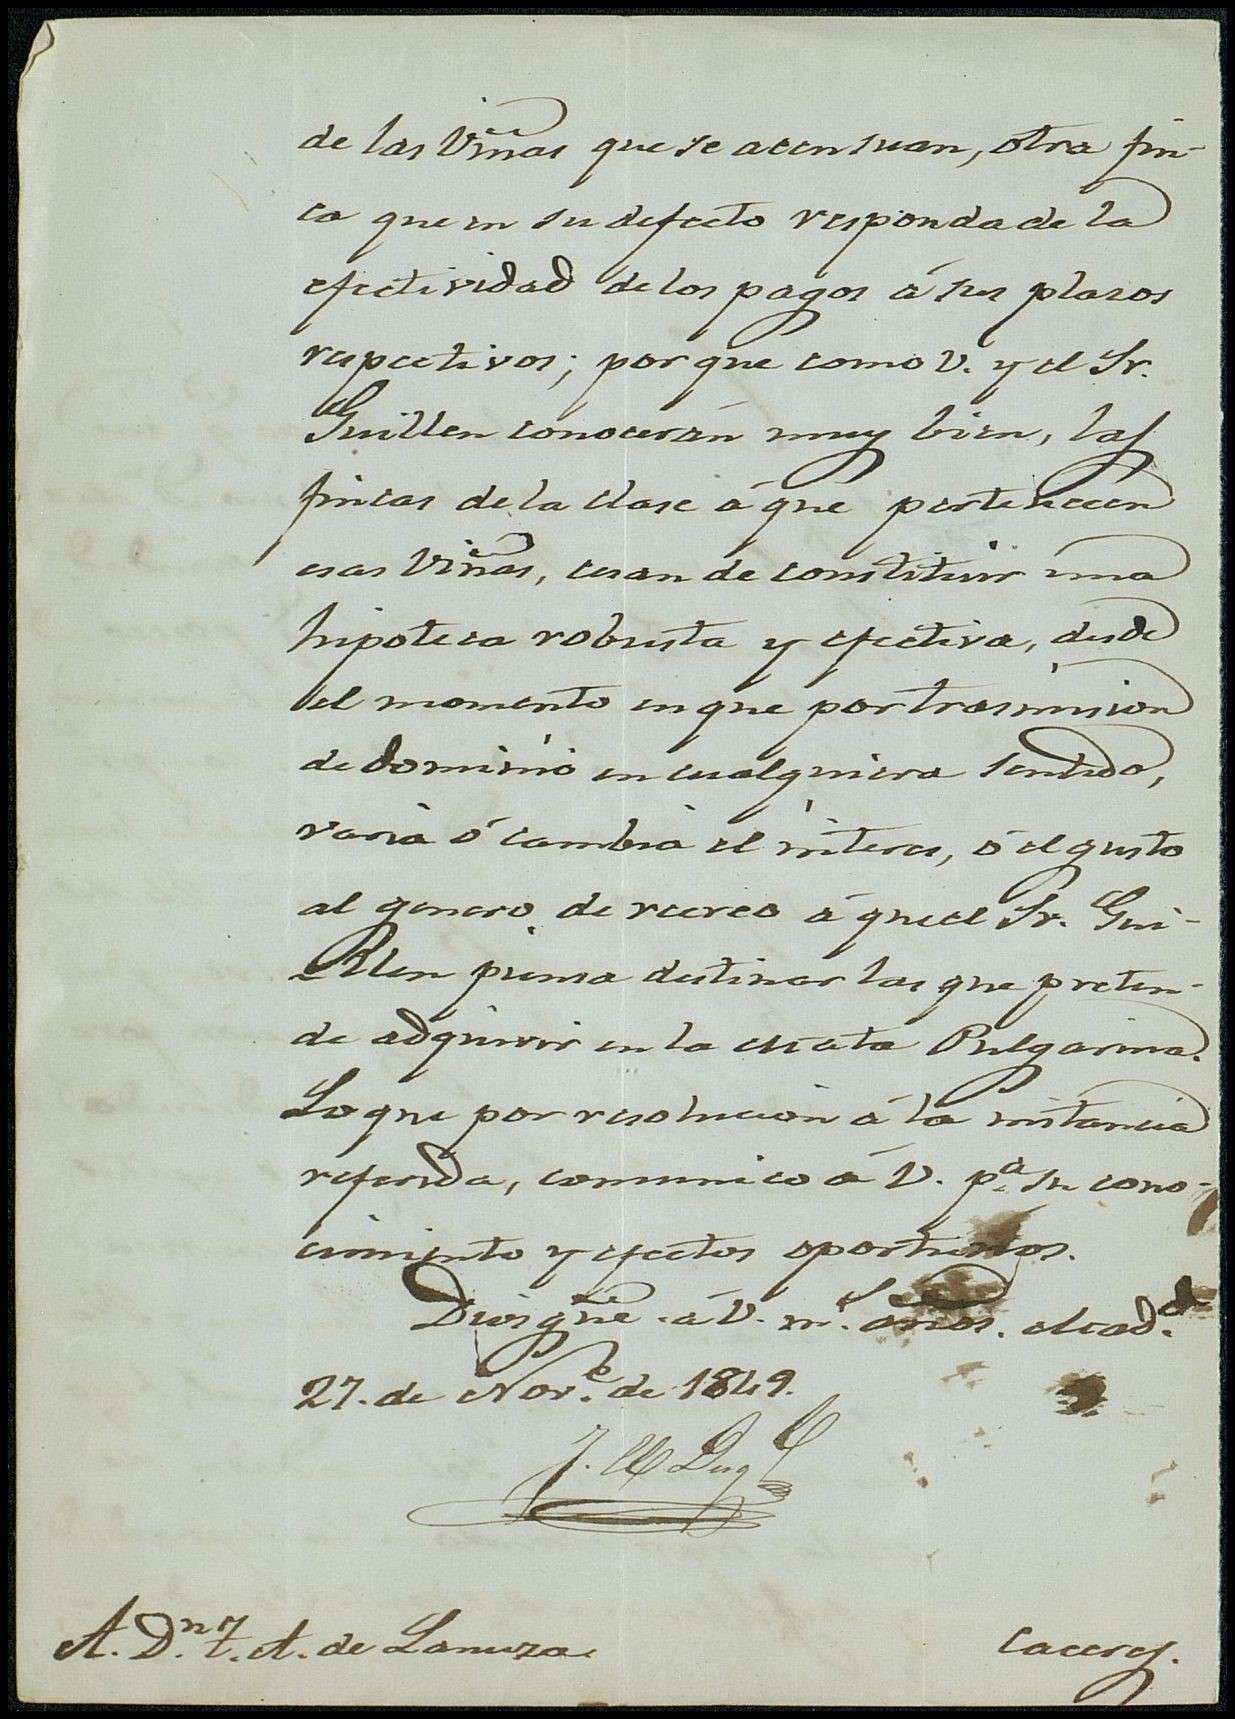 de las Viñas que se acensuan, otra fin-
ca que en su defecto responda de la
efectividad de los pagos á sus plazos
respectivos; por que como V. y el Sr.
Guillen conocerán muy bien, las
fincas de la clase á que pertenecen
esas Viñas, cesan de constituir una
hipoteca robusta y efectiva, desde
el momento en que por trasmision
de dominio en cualquiera sentido,
varia ó cambia el interes, ó el gusto
al genero de recreo á que el Sr. Gui-
llen piensa destinar las que preten-
de adquirir en la Mata Pulgarina.
Lo que por resolucion á la instancia
referida, comunico á V. pª su cono-
cimiento y efectos oportunos.
Dios gũe. á V. mˢ. años. Madᵈ.
27. de Novᵉ. de 1849.
J. M.
A. Dⁿ. T. A. de Lanuza.
Caceres.